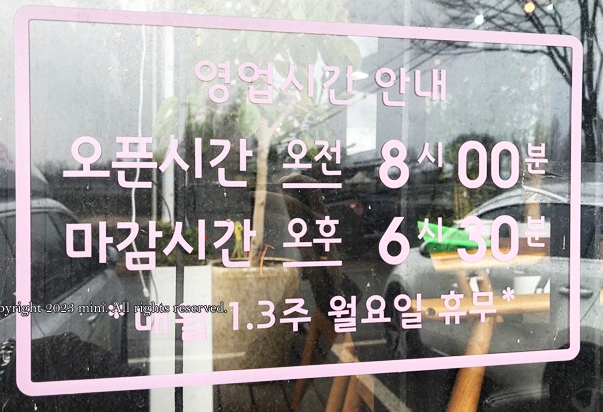 영업시간 안내
오픈시간 오전 8시 00분
마감시간 오후 6시 30분
*매월 1.3주 월요일 휴무*
opyright 2023 mim. All rights reserved.